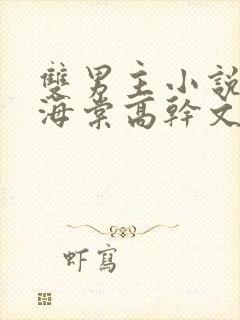 雙男主小說
海棠高幹文
虾寫